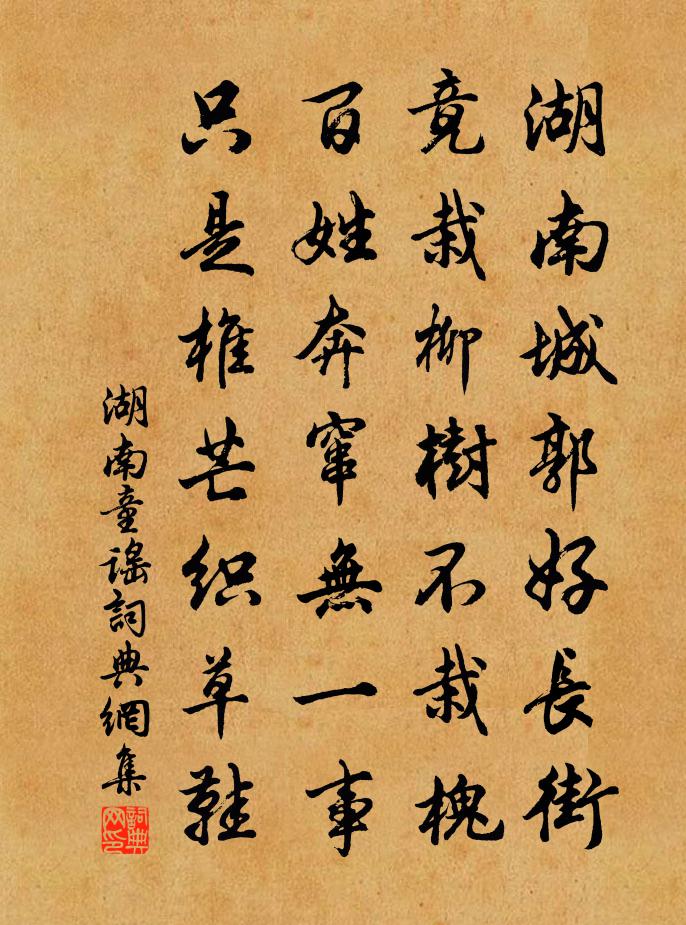 湖南城郭好長街
竟栽柳樹不栽槐
百姓奔竄無一事
只是椎芒织草鞋
湖南童谣詞典網集
詞典
网印